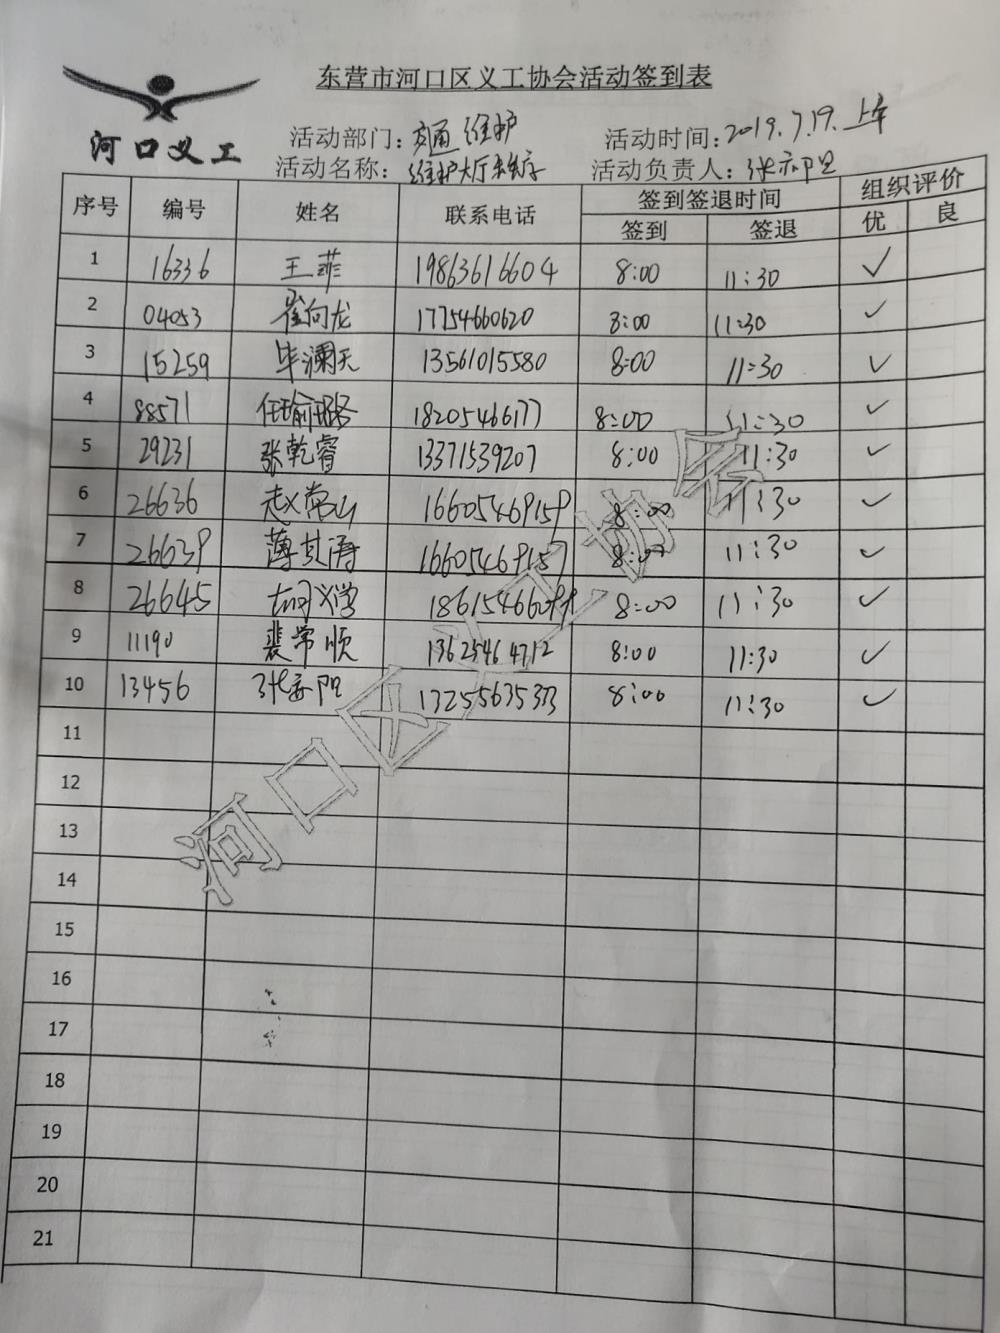 东营市河口区义工协会活动签到表
河口义工
活动部门：交通维护 活动时间：2019.7.19.上午
活动名称：维护大厅秩序 活动负责人：
序号 编号 姓名 联系电话 签到签退时间 组织评价
签到 签退 优 良
1 16336 王菲 19863616604 8:00 11:30 ✓
2 04053 崔向龙 17754660620 8:00 11:30 ✓
3 15259 毕澜天 13561015580 8:00 11:30 ✓
4 88571 任瑜璐 18205466177 8:00 11:30 ✓
5 29231 张乾睿 13371539207 8:00 11:30 ✓
6 26636 赵常山 16605469159 8:00 11:30 ✓
7 26639 薄其海 16605469157 8:00 11:30 ✓
8 26645 8:00 11:30 ✓
9 11190 裴常顺 13625464712 8:00 11:30 ✓
10 13456 8:00 11:30 ✓
11
12
13
14
15
16
17
18
19
20
21
河口区义工协会